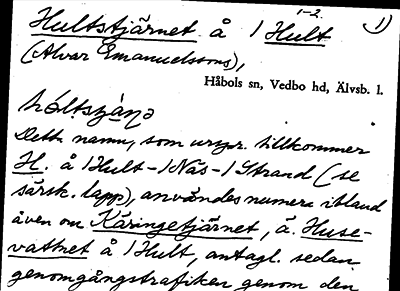 1-2. 1)
Hultstjärnet å 1 Hult
(Alvar Emanuelssons),
Håbols sn, Vedbo hd, Älvsb. l.
Dett. namn, som urspr. tillkommer
H. å 1 Hult - 1 Näs - 1 Strand (se
särsk. lapp), användes numera ibland
även om Käringetjärnet, å. Huse-
vattnet å 1 Hult, antagl. sedan
genomgångstrafiken genom den